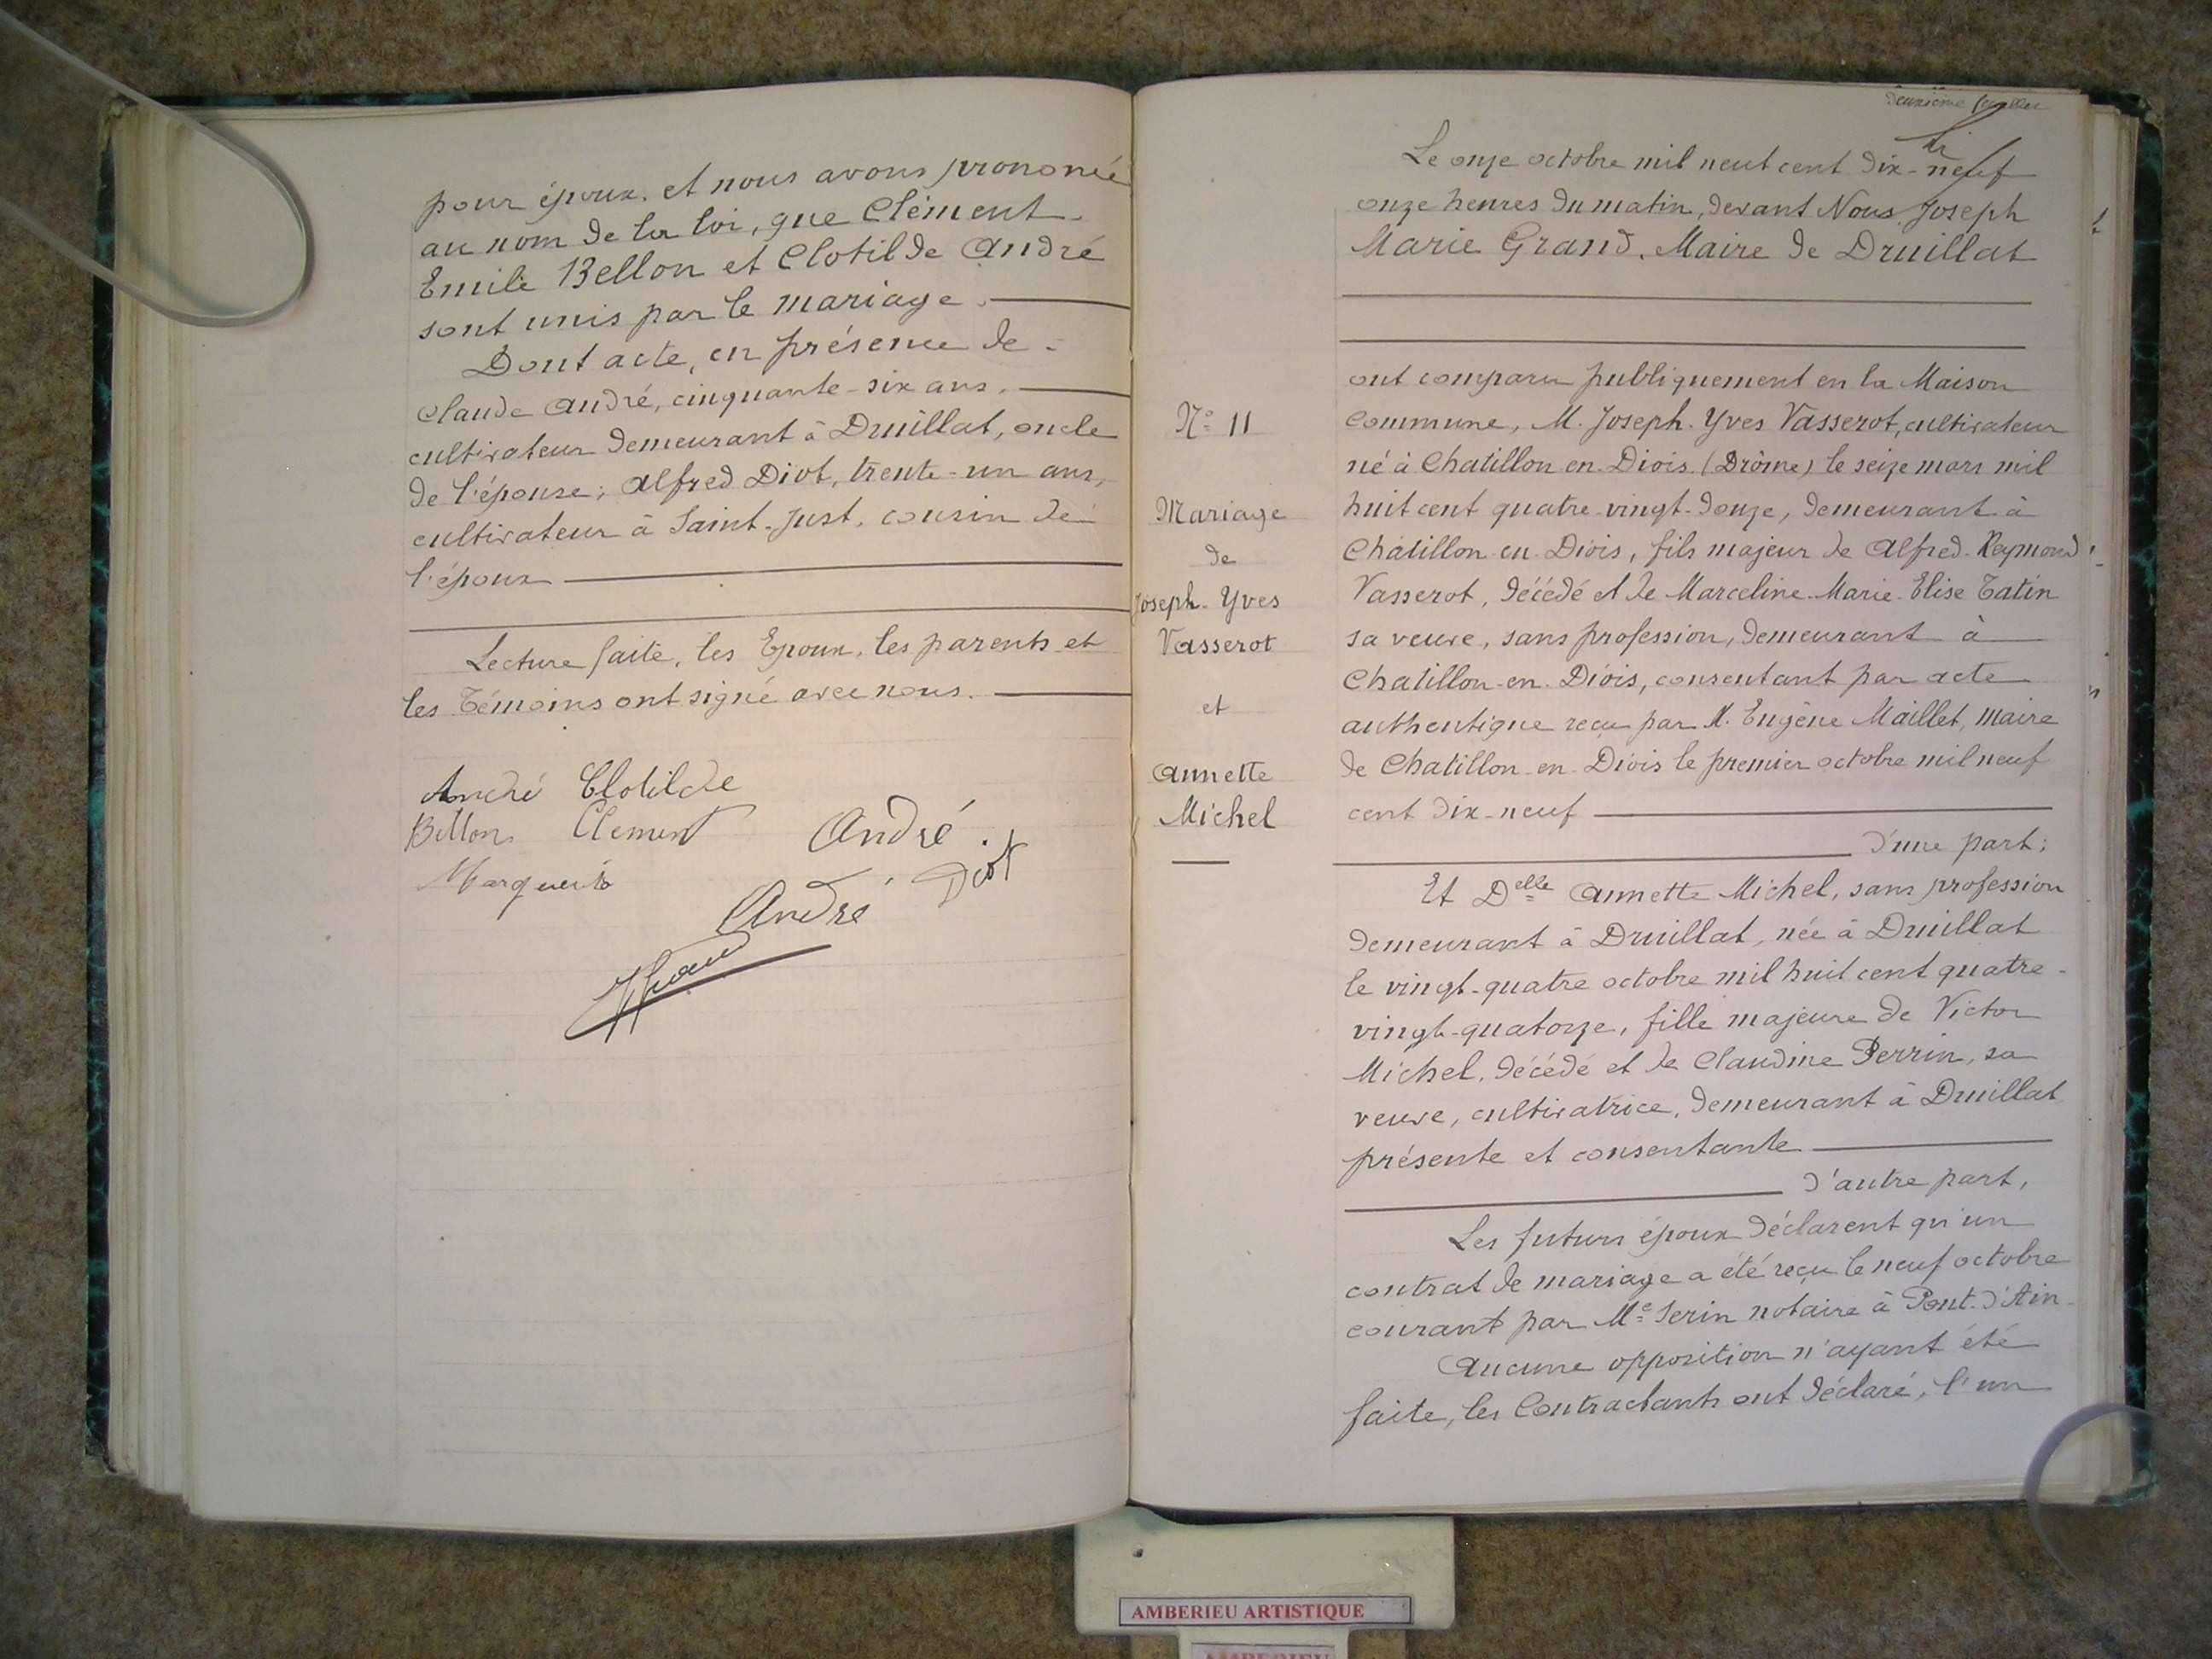 pour époux, et nous avons prononcé
au nom de la loi, que Clément
Emile Bellon et Clotilde André
sont unis par le mariage.
Dont acte, en présence de
Claude André, cinquante-six ans,
cultivateur demeurant à Druillat, oncle
de l'épouse; Alfred Diot, trente-un ans,
cultivateur à Saint-Just, cousin de
l'époux
Lecture faite, les Epoux, les parents et
les Témoins ont signé avec nous.
André Clotilde
Bellon Clement André
Diot
André
deuxième
Le onze octobre mil neuf cent dix-neuf
onze heures du matin, devant Nous Joseph
Marie Grand, Maire de Druillat
ont comparu publiquement en la Maison
N° 11
commune, M. Joseph-Yves Vasserot, cultivateur
né à Chatillon en-Diois (Drôme) le seize mars mil
Mariage
de
Joseph-Yves
Vasserot
et
Annette
Michel
huit cent quatre-vingt-douze, demeurant à
Châtillon-en-Diois, fils majeur de Alfred-Raymond
Vasserot, décédé et de Marceline-Marie-Elise Tatin
sa veuve, sans profession, demeurant à
Chatillon-en-Diois, consentant par acte
authentique reçu par M. Eugène Maillet, maire
de Chatillon-en-Diois le premier octobre mil neuf
cent dix-neuf
d'une part;
Et Delle Annette Michel, sans profession
demeurant à Druillat, née à Druillat
le vingt-quatre octobre mil huit cent quatre-
vingt-quatorze, fille majeure de Victor
Michel, décédé et de Claudine Perrin, sa
veuve, cultivatrice, demeurant à Druillat
présente et consentante
d'autre part,
Les futurs époux déclarent qu'un
contrat de mariage a été reçu le neuf octobre
courant par Me Serin notaire à Pont-d'Ain
Aucune opposition n'ayant été
faite, les Contractants ont déclaré, l'un
AMBERIEU ARTISTIQUE